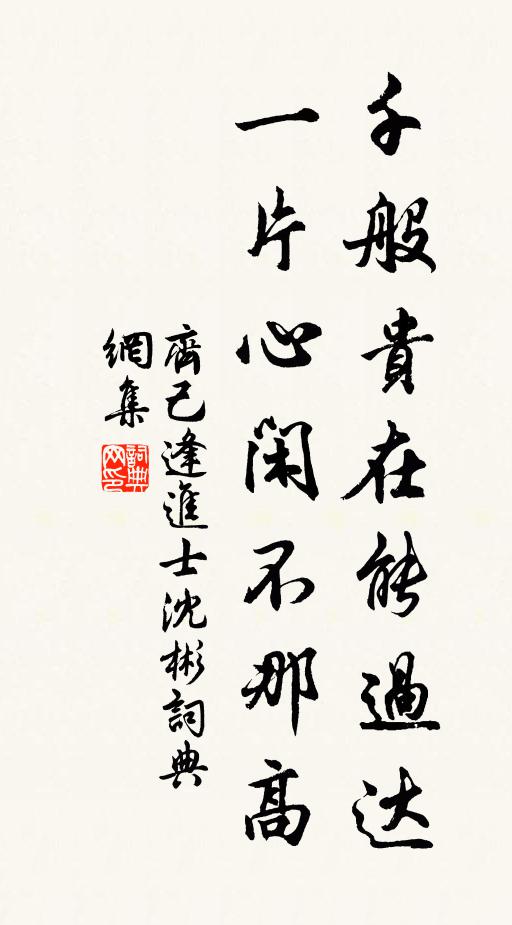 千般貴在能過达
一片心閑不那高
齊己逢進士沈彬詞典
網集
詞典
网印